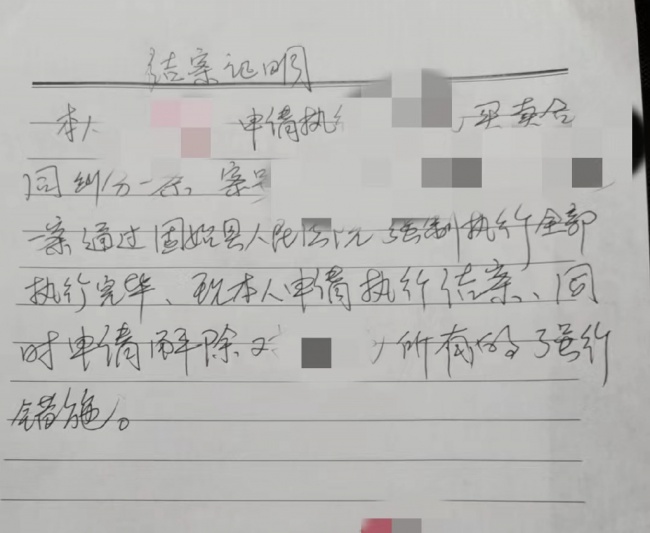 结案证明
本人 申请执行 买卖合
同纠纷一案, 案号
一案通过固始县人民法院强制执行全部
执行完毕、现本人申请执行结案、同
时申请解除对 所有的强行
错施。